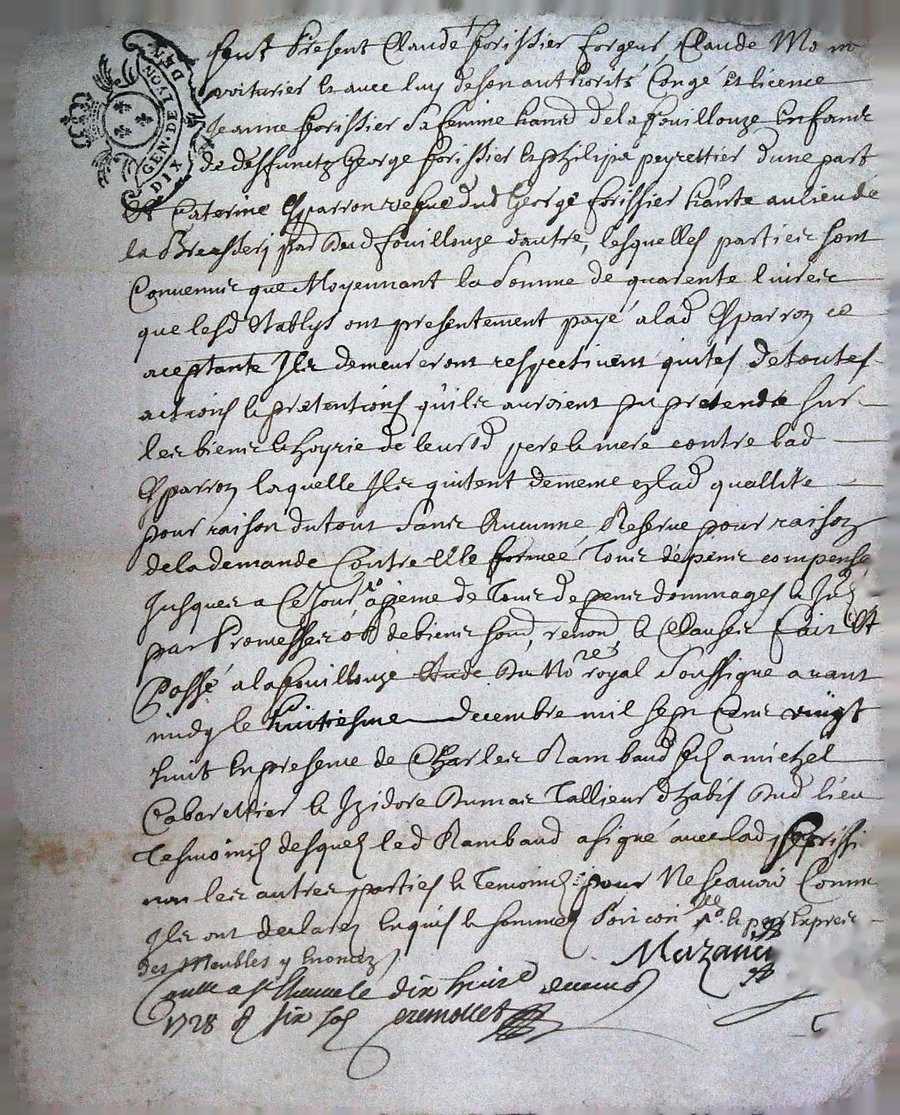 GEN. DE LYON DIX DEN
sont Present Claude forissier forgeur, Claude
voiturier et avec luy de son authorité Congé et licence
Jeanne forissier Sa femme de la fouillouze Enfants
de deffunctz George forissier et philipe peyrettier d'une part
Et Caterine Esparron vefve dud George forissier au lieu de
la parr dud fouillouze d'autre, lesquelles parties sont
Convenues que Moyennant la Somme de quarente livres
que lesd ont presentement payé a lad Esparron ce
aceptante Ils demeureront respectivement quites de toutes
actions et pretentions qu'ils auroient pu pretendre sur
les biens et hoyrie de leursd pere et mere contre lad
Esparron laquelle Ils quitent de meme ezlad quallite
pour raison du tout Sans Aucunne Reserve pour raison
de la demande Contre Elle formée tous depens compensé
Jusques a Ce Jour, a peine de Tous depens dommages et
par Promesses ob de biens sond, renond et Clauses fait Et
Passé a la fouillouze Etude du Nore royal Soussigne avant
midy le huitiesme decembre mil sept Cens vingt
huit En presence de Charles Rambaud
Cabarettier et Izidore Dumas Tallieur d'habis dud lieu
Tesmoins desquels led Rambaud a signé avec lad forissi
non les autres parties et Temoins pour Ne scavoir Comme
Ils ont declarez Enquis et Sommez
des Meubles y Enoncez
Mazand
dix huit
1728 six sols